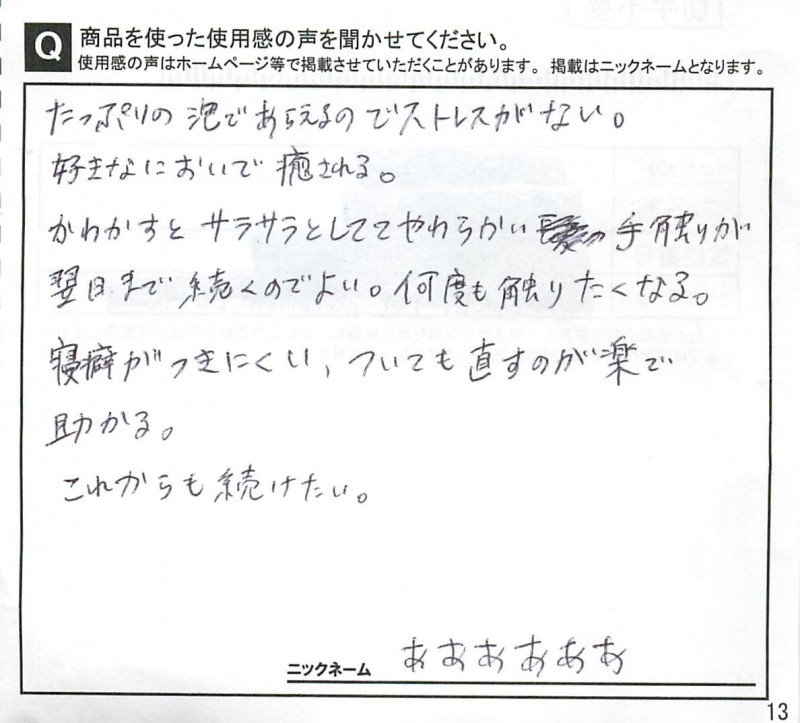 Q 商品を使った使用感の声を聞かせてください。
使用感の声はホームページ等で掲載させていただくことがあります。 掲載はニックネームとなります。
たっぷりの泡であらえるのでストレスがない。
好きなにおいで癒される。
かわかすとサラサラとしててやわらかい髪の手触りが
翌日まで続くのでよい。何度も触りたくなる。
寝癖がつきにくい、ついても直すのが楽で
助かる。
これからも続けたい。
ニックネーム ああああああ
13